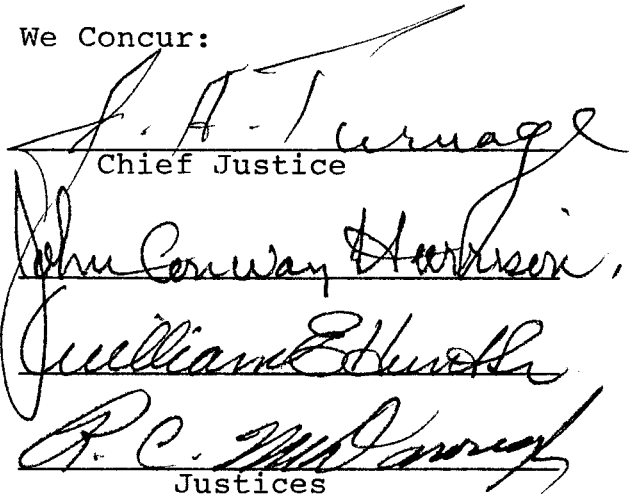 We Concur:
J. A. Turnage
Chief Justice
John Conway Harrison,
William E Hunt Sr
R. C. McDonough
Justices